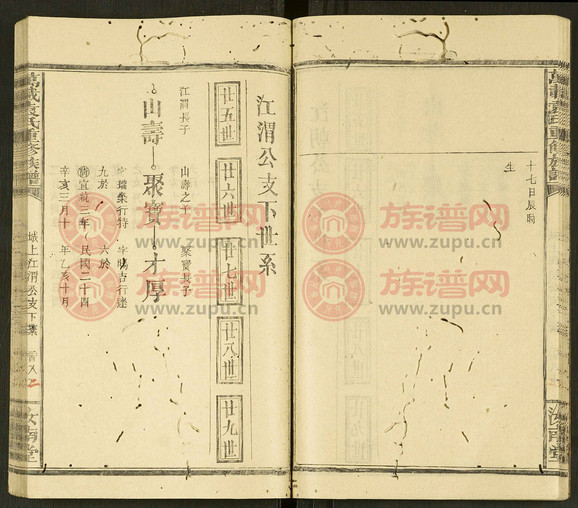 十七日辰時
生
江渭公支下世系
廿五世
廿六世
廿七世
廿八世
廿九世
江渭長子
山壽
山壽之子
聚寶
聚寶長子
才厚
字瑞桼行特
九於
宣統三年
辛亥三月十
字暘吉行迷
六於
民國二十四
年乙亥十月
萬載袁氏重修族譜
城上江渭公支下系
汝南堂
萬載袁氏重修族譜
汝南堂
族谱网
www.zupu.cn
族谱网
www.zupu.cn
族谱网
www.zupu.cn
族谱网
www.zupu.cn